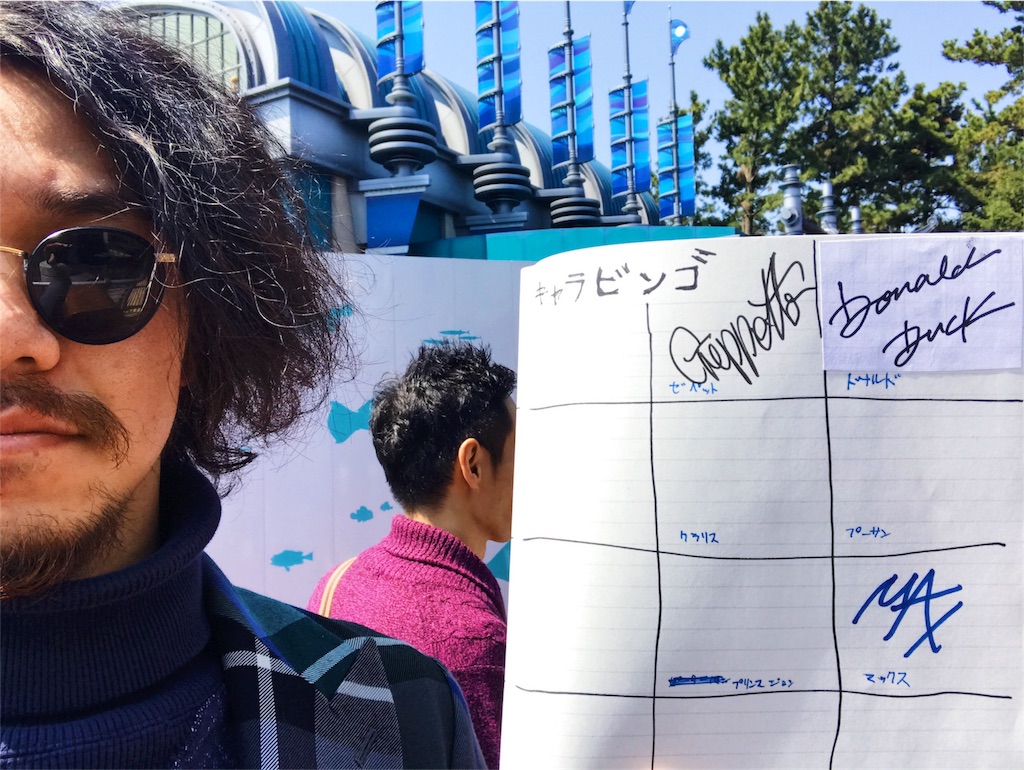 キャラビンゴ
Geppetto
Donald
Duck
ゼペット
ドナルド
クラリス
プーサン
MAX
プリンスジョン
マックス